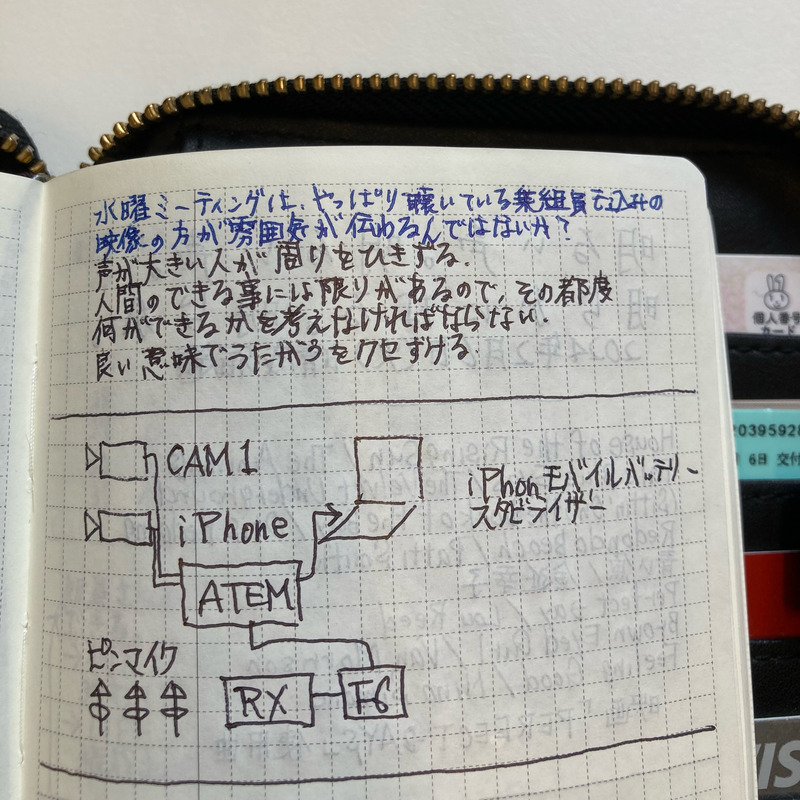 水曜ミーティングは、やっぱり聴いている乗組員も込みの
映像の方が雰囲気が伝わるんではないか?
声が大きい人が周りをひきずる.
人間のできる事には限りがあるので、その都度
何ができるかを考えなければならない.
良い意味でうたがうをクセずける
CAM1
iPhone
iPhon モバイルバッテリー
スタビライザー
ATEM
ピンマイク
RX
F6
個人番号
カード
20395928
6日 交付
VIS